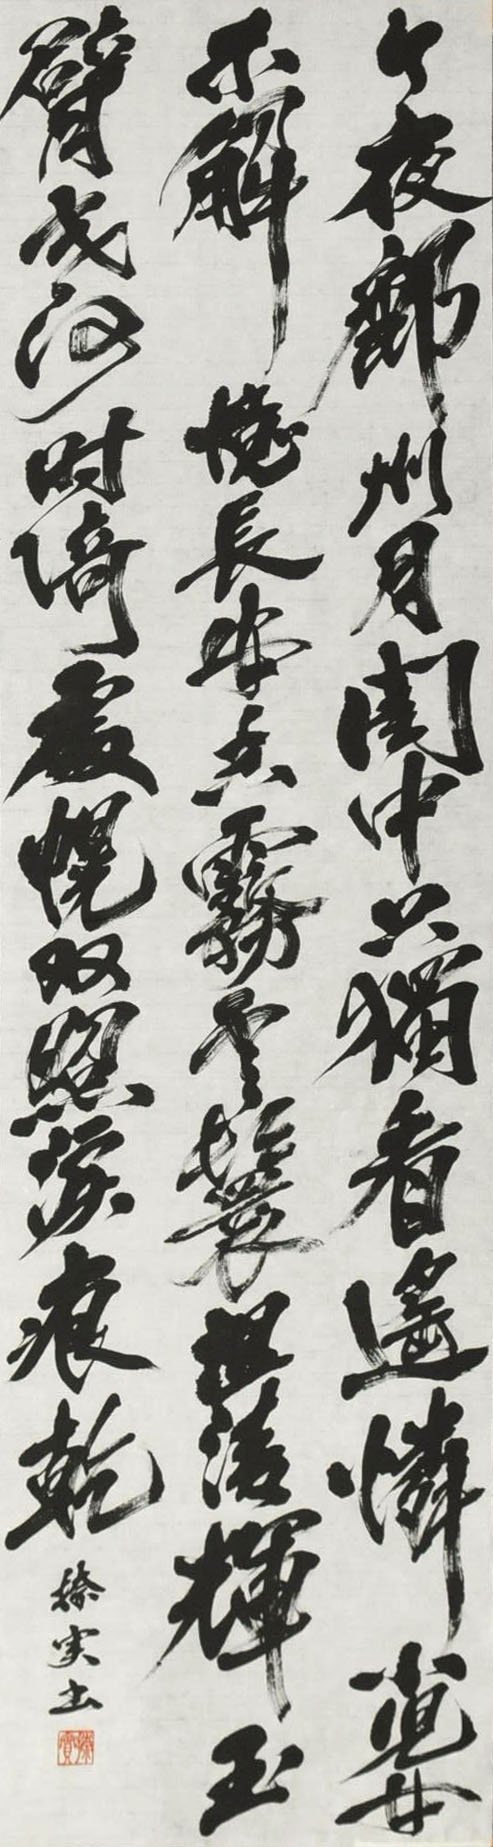 今夜鄜州月閨中只獨看遙憐小兒女
未解憶長安香霧云鬟湿清輝玉
臂寒何时倚虛幌双照淚痕乾
榛実书